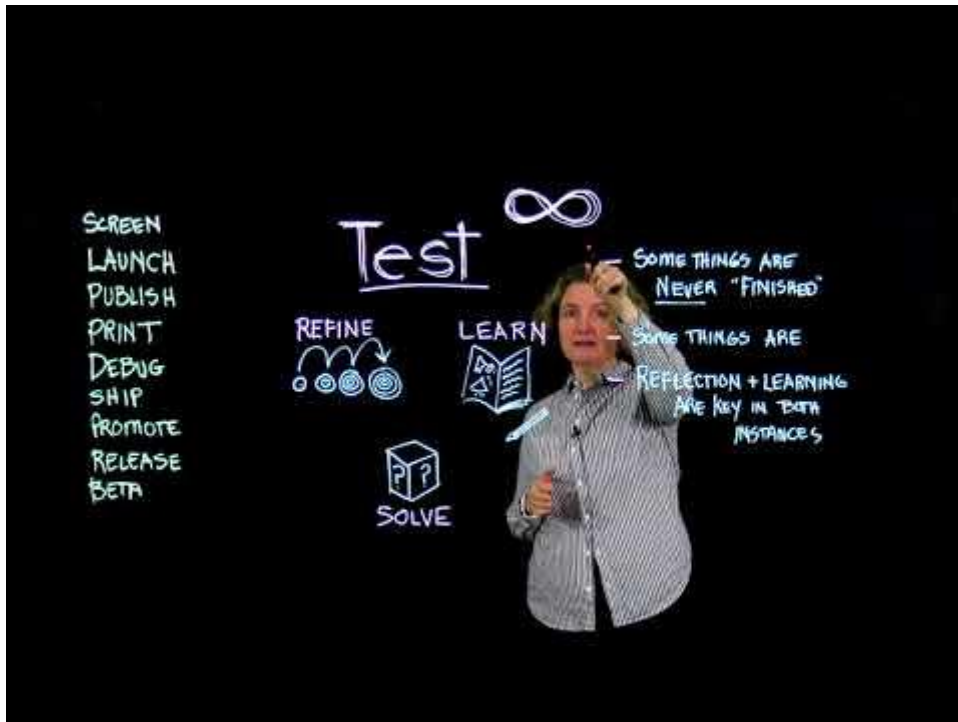 SCREEN
LAUNCH
PUBLISH
PRINT
DEBUG
SHIP
PROMOTE
RELEASE
BETA
Test
REFINE
LEARN
? ?
SOLVE
– SOME THINGS ARE
NEVER "FINISHED"
– SOME THINGS ARE
– REFLECTION + LEARNING
ARE KEY IN BOTH
INSTANCES